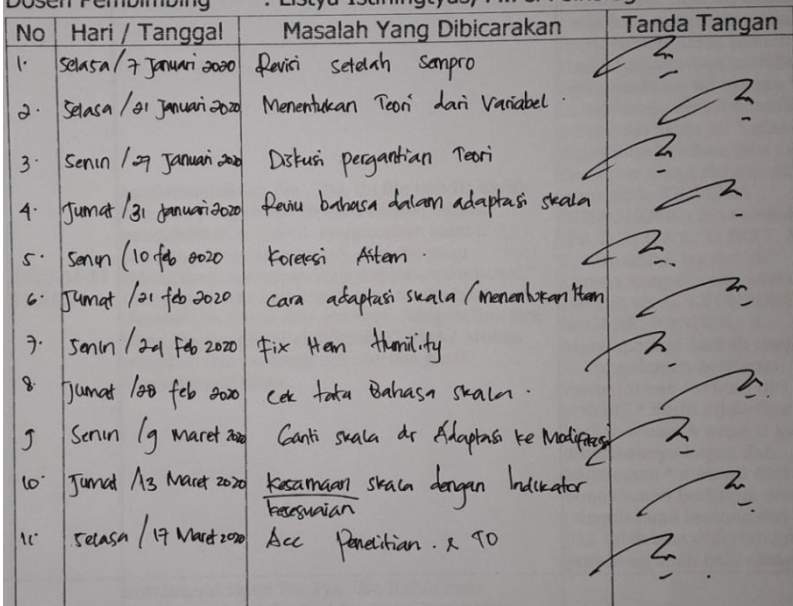 Dosen Pembimbing : Listya Istiningtyas, M.Psi
No Hari / Tanggal Masalah Yang Dibicarakan Tanda Tangan
1. Selasa / 7 Januari 2020 Revisi setelah sempro
2. Selasa / 21 Januari 2020 Menentukan Teori dari Variabel.
3. Senin / 27 Januari 2020 Diskusi pergantian Teori
4. Jumat / 31 Januari 2020 Reviu bahasa dalam adaptasi skala
5. Senin / 10 feb 2020 Koreksi Aitem.
6. Jumat / 21 feb 2020 cara adaptasi skala / menentukan Item
7. Senin / 24 Feb 2020 Fix Item Humility
8. Jumat / 28 feb 2020 Cek tata Bahasa skala.
9 Senin / 9 maret 2020 Ganti skala dr Adaptasi ke Modifikasi
10. Jumat / 13 Maret 2020 Kesamaan skala dengan Indikator
kesesuaian
11. Selasa / 17 Maret 2020 Acc Penelitian. & TO